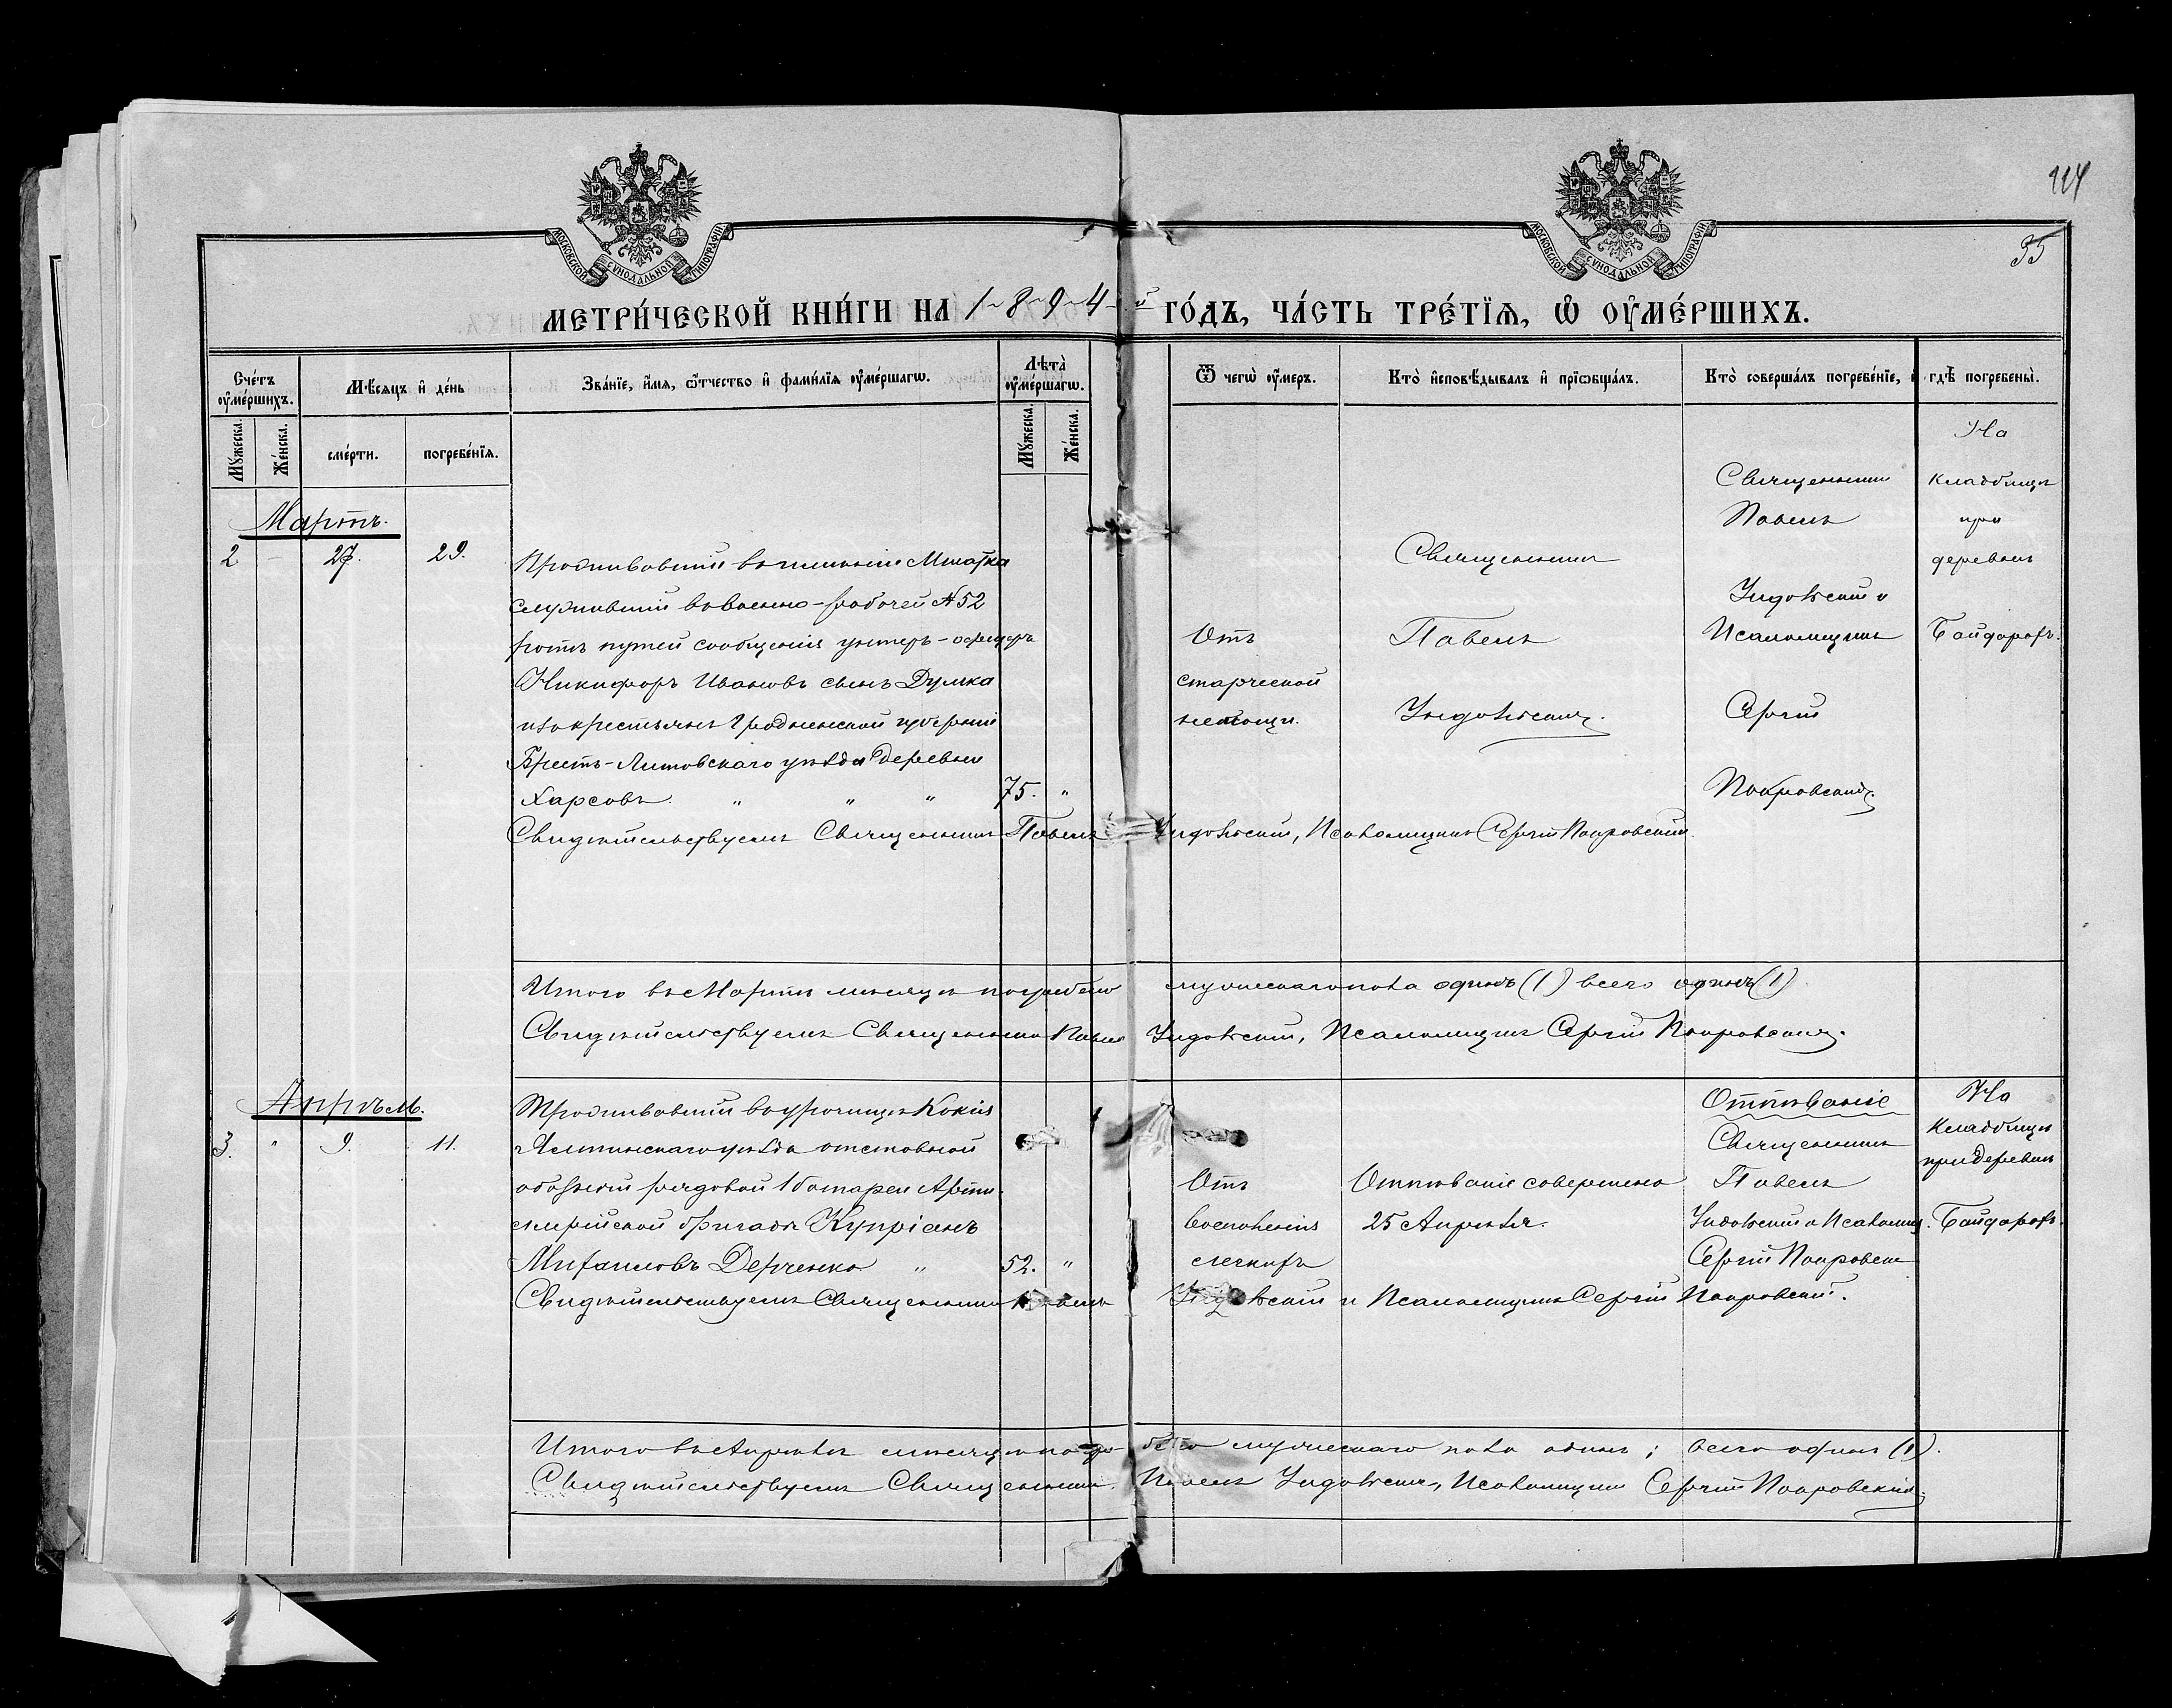 МОСКОВСКОЙ СѴНОДАЛЬНОЙ ТИПОГРАФІИ
МОСКОВСКОЙ СѴНОДАЛЬНОЙ ТИПОГРАФІИ
35
МЕТРИ́ЧЕСКОЙ КНИ́ГИ НА 1894-й ГО́ДЪ, ЧА́СТЬ ТРЕ́ТІѦ, Ѡ҆ ОУ҆МЕ́РШИХЪ.
Сче́тъ оу҆ме́ршихъ.
Мѣ́сяцъ и҆ де́нь
Зва́нїе, и҆́мѧ, ѻ҆́тчество и҆ фами́лїѧ оу҆ме́ршагѡ.
Лѣта̀ оу҆ме́ршагѡ.
Ѿ чегѡ̀ оу҆́меръ.
Кто̀ и҆сповѣ́дывалъ и҆ прїѡбща́лъ.
Кто̀ соверша́лъ погребе́нїе, и҆ гдѣ̀ погребены̀.
Мꙋ́жеска.
Же́нска.
сме́рти.
погребе́нїѧ.
Мꙋ́жеска.
Же́нска.
Мартъ.
2 — 27. 29.
Проживавшій въ имѣніи Мшатка
служившій въ военно-рабочей №52
ротѣ путей сообщенія унтеръ-офицеръ
Никифоръ Ивановъ сынъ Думка
изъ крестьянъ Гродненской губерніи
Брестъ-Литовскаго уѣзда деревни
Харсовъ. " " " 75. "
Отъ
старческой
немощи.
Священникъ
Павелъ
Священникъ
Павелъ
Псаломщикъ
Сергій
Покровскій.
На
кладбищѣ
при
деревнѣ
Байдарахъ.
Свидѣтельствуемъ Священникъ Павелъ Псаломщикъ Сергій Покровскій.
Итого въ Мартѣ мѣсяцѣ погребено мужескаго пола одинъ (1) всего одинъ (1)
Свидѣтельствуемъ Священникъ Павелъ Псаломщикъ Сергій Покровскій.
Апрѣль.
3. " 9. 11.
Проживавшій въ урочищѣ Кокія
Ялтинскаго уѣзда отставной
обозный рядовой 1 батареи Артил-
лерійской бригады Кипріанъ
Михаиловъ Дерченко " 52. "
Отъ
воспаленія
легкихъ
Отпѣваніе совершено
25 Апрѣля.
Отпѣваніе
Священникъ
Павелъ
и Псаломщ.
Сергій Покровскій
На
Кладбищѣ
при деревнѣ
Байдарахъ.
Свидѣтельствуемъ Священникъ Павелъ и Псаломщикъ Сергій Покровскій.
Итого въ Апрѣлѣ мѣсяцѣ погребено мужескаго пола одинъ; всего одинъ (1).
Свидѣтельствуемъ Священникъ Павелъ Псаломщикъ Сергій Покровскій.